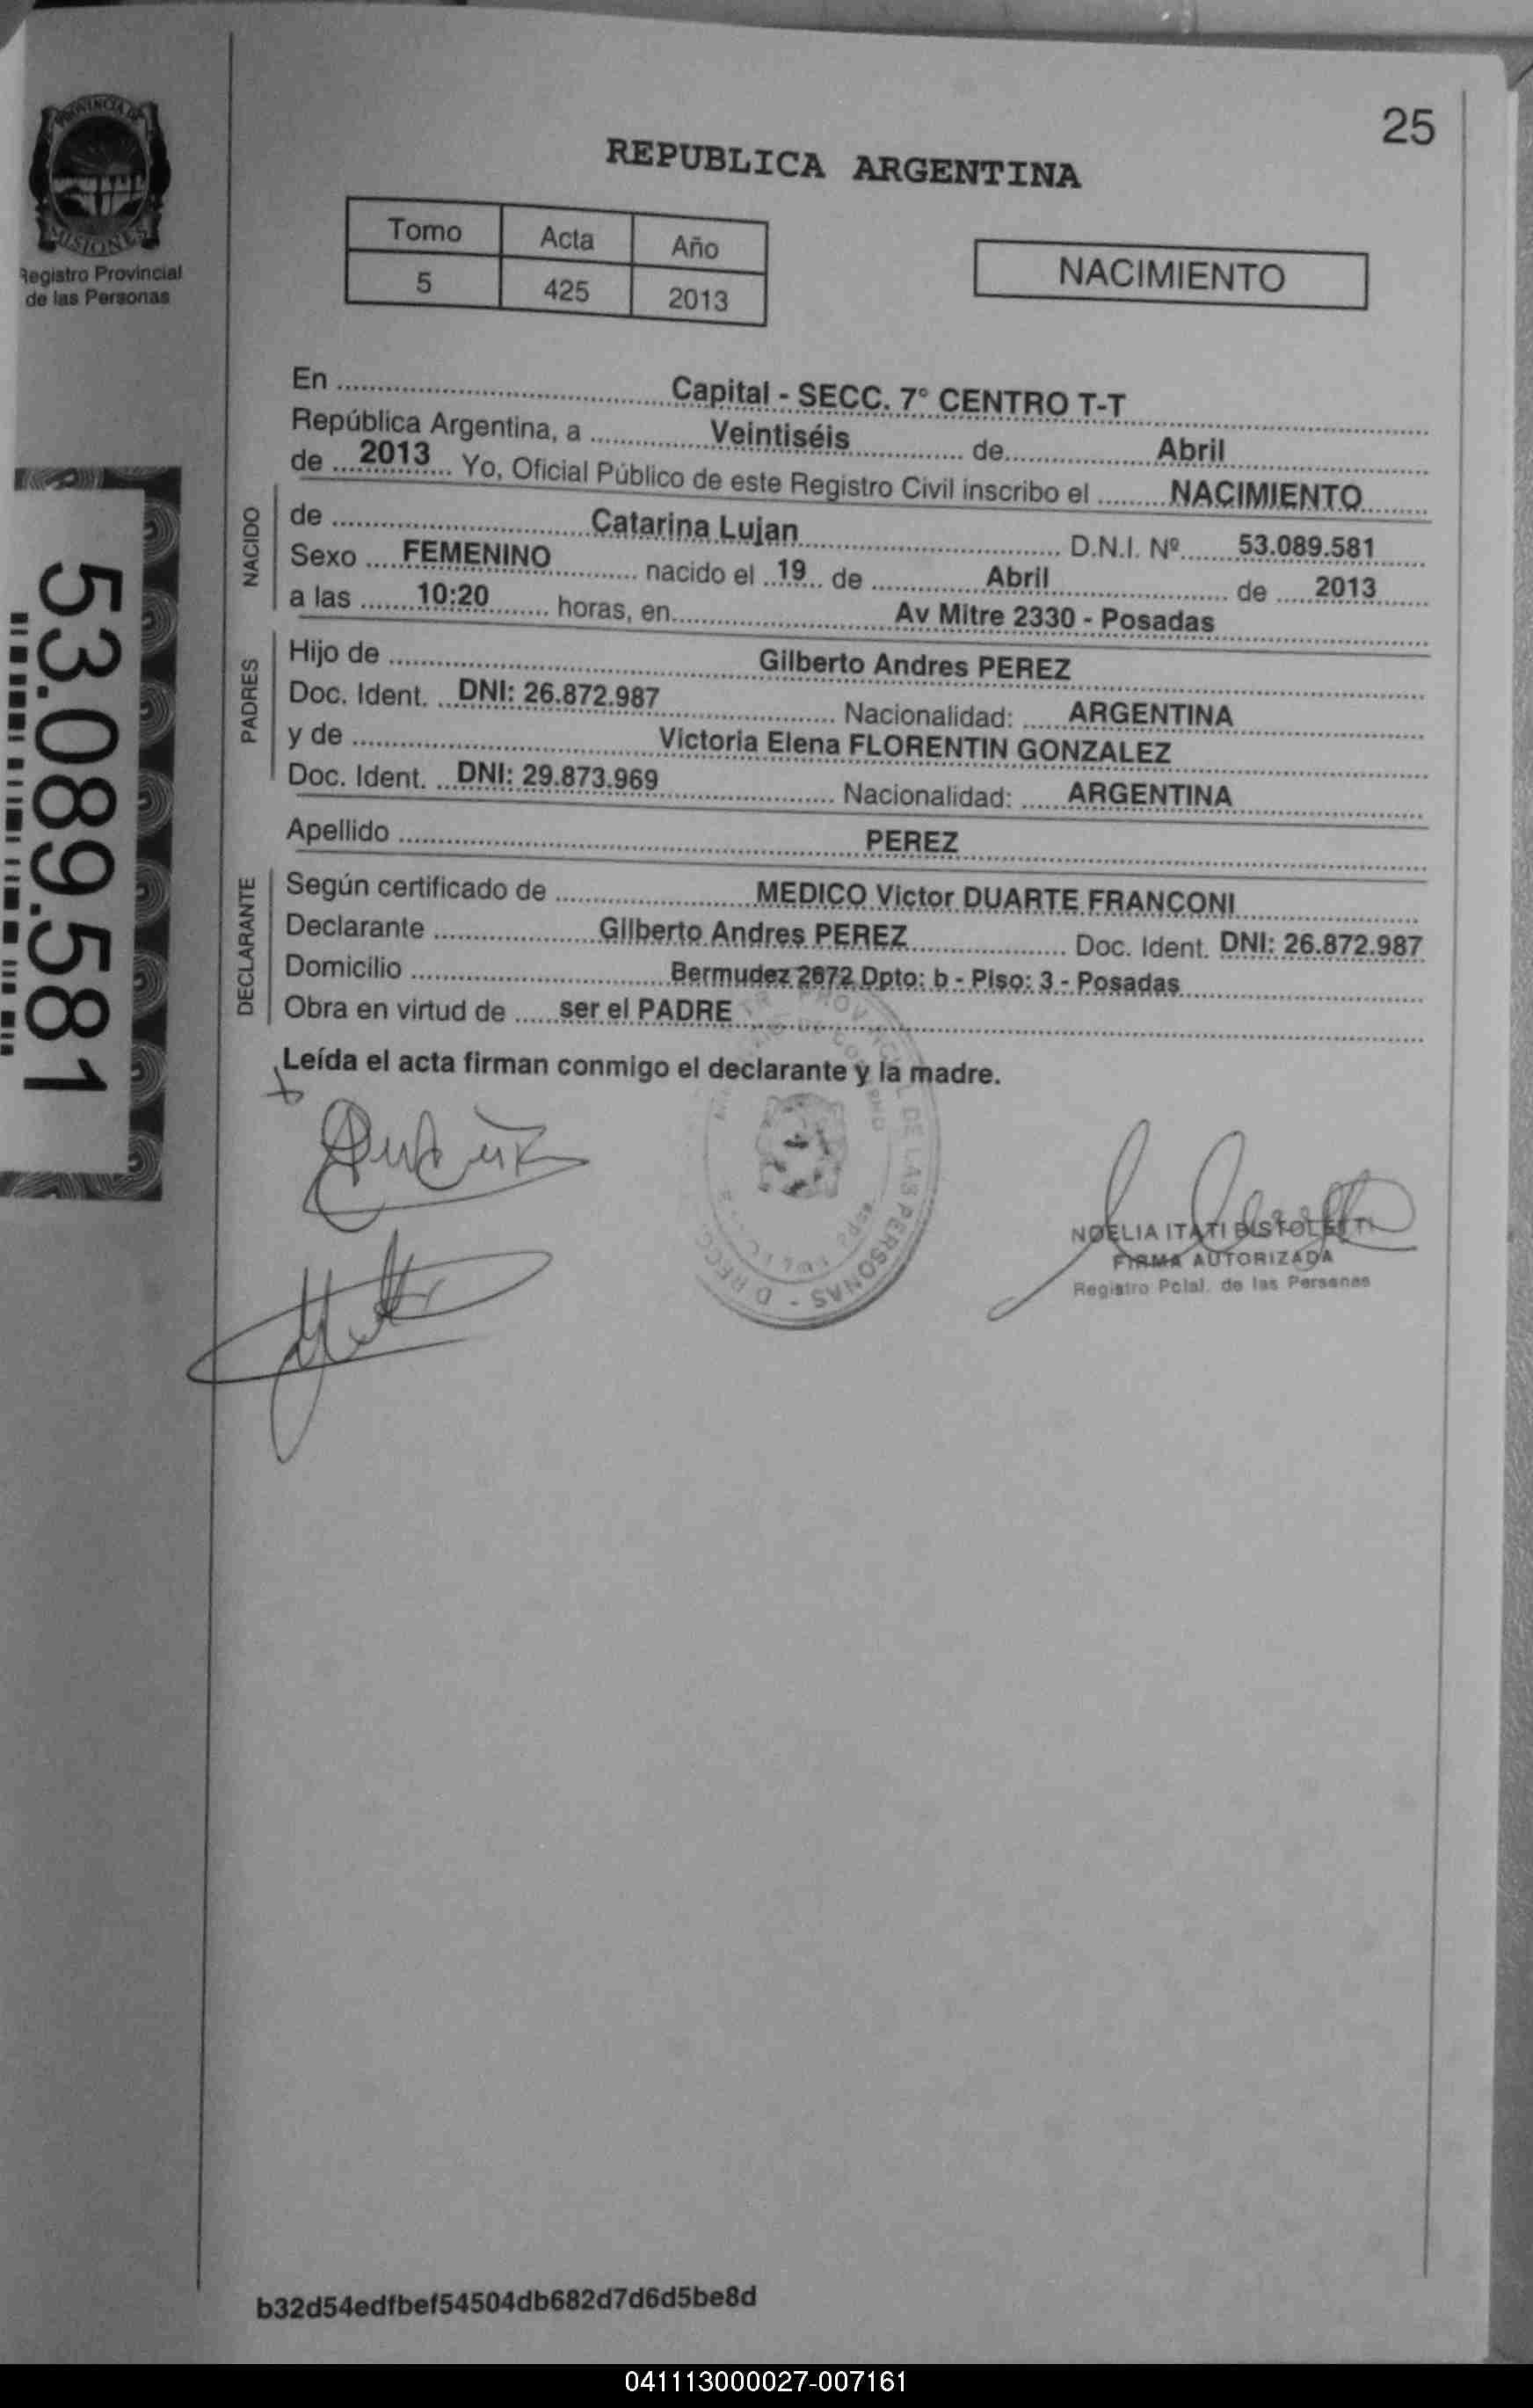 25
PROVINCIA DE
MISIONES
Registro Provincial
de las Personas
REPUBLICA ARGENTINA
Tomo Acta Año
5 425 2013
NACIMIENTO
En Capital - SECC. 7° CENTRO T-T
República Argentina, a Veintiséis de Abril
de 2013 Yo, Oficial Público de este Registro Civil inscribo el NACIMIENTO
NACIDO
de Catarina Lujan D.N.I. Nº 53.089.581
Sexo FEMENINO nacido el 19 de Abril de 2013
a las 10:20 horas, en Av Mitre 2330 - Posadas
PADRES
Hijo de Gilberto Andres PEREZ
Doc. Ident. DNI: 26.872.987 Nacionalidad: ARGENTINA
y de Victoria Elena FLORENTIN GONZALEZ
Doc. Ident. DNI: 29.873.969 Nacionalidad: ARGENTINA
Apellido PEREZ
DECLARANTE
Según certificado de MEDICO Victor DUARTE FRANCONI
Declarante Gilberto Andres PEREZ Doc. Ident. DNI: 26.872.987
Domicilio Bermudez 2672 Dpto: b - Piso: 3 - Posadas
Obra en virtud de ser el PADRE
Leída el acta firman conmigo el declarante y la madre.
53.089.581
DE LAS PERSONAS
NOELIA ITATI
FIRMA AUTORIZADA
Registro Pcial. de las Personas
b32d54edfbef54504db682d7d6d5be8d
041113000027-007161